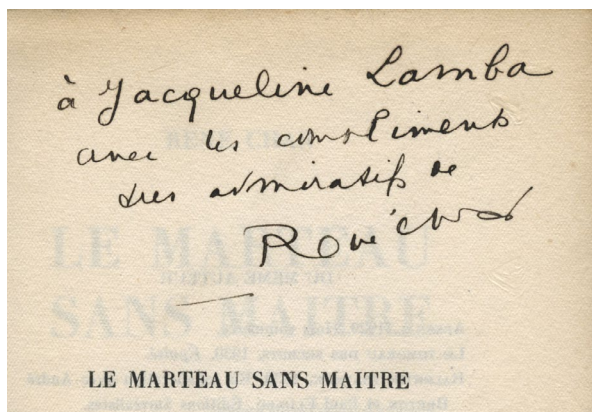 à Jacqueline Lamba
avec les compliments
très admiratifs de
René Char
LE MARTEAU
SANS MAITRE
LE MARTEAU SANS MAITRE